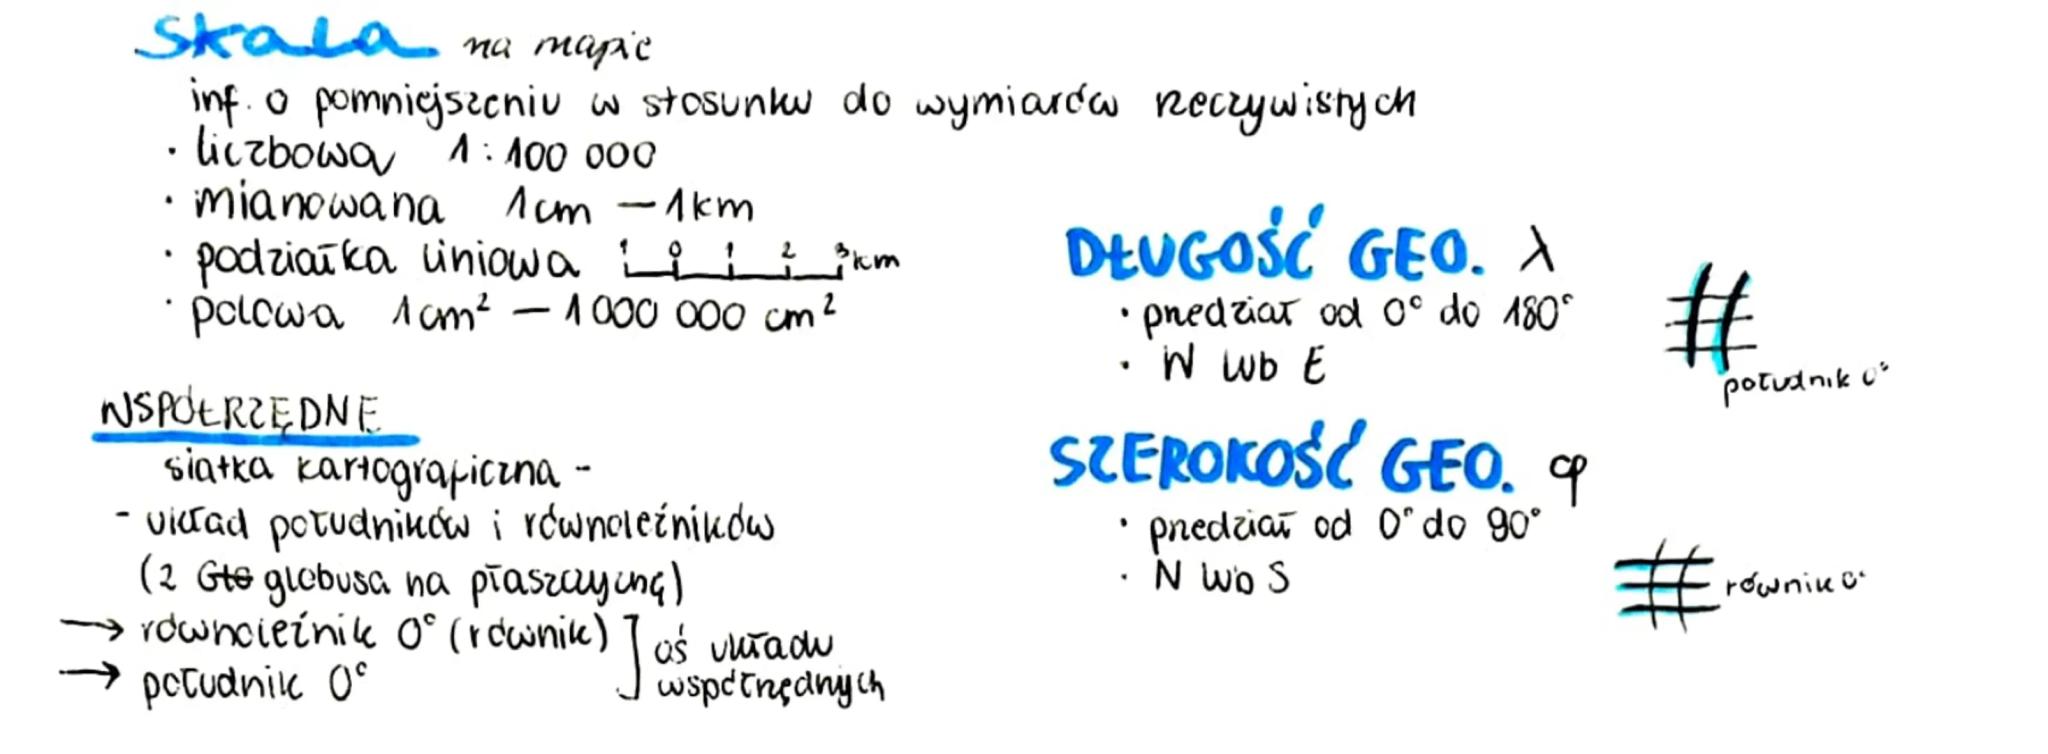 Skala na mapie
inf. o pomniejszeniu w stosunku do wymiarów rzeczywistych
· liczbowa 1 : 100 000
· mianowana 1cm – 1km
· podziałka liniowa 1 0 1 2 3 km
· polowa 1cm² – 1 000 000 cm²
WSPÓŁRZĘDNE
siatka kartograficzna -
- układ południków i równoleżników
(z Glo globusa na płaszczyznę)
→ równoleżnik 0° (równik)
→ południk 0°
oś układu
współrzędnych
DŁUGOŚĆ GEO. λ
· przedział od 0° do 180°
· W lub E
południk 0°
SZEROKOŚĆ GEO. φ
· przedział od 0° do 90°
· N lub S
równik 0°